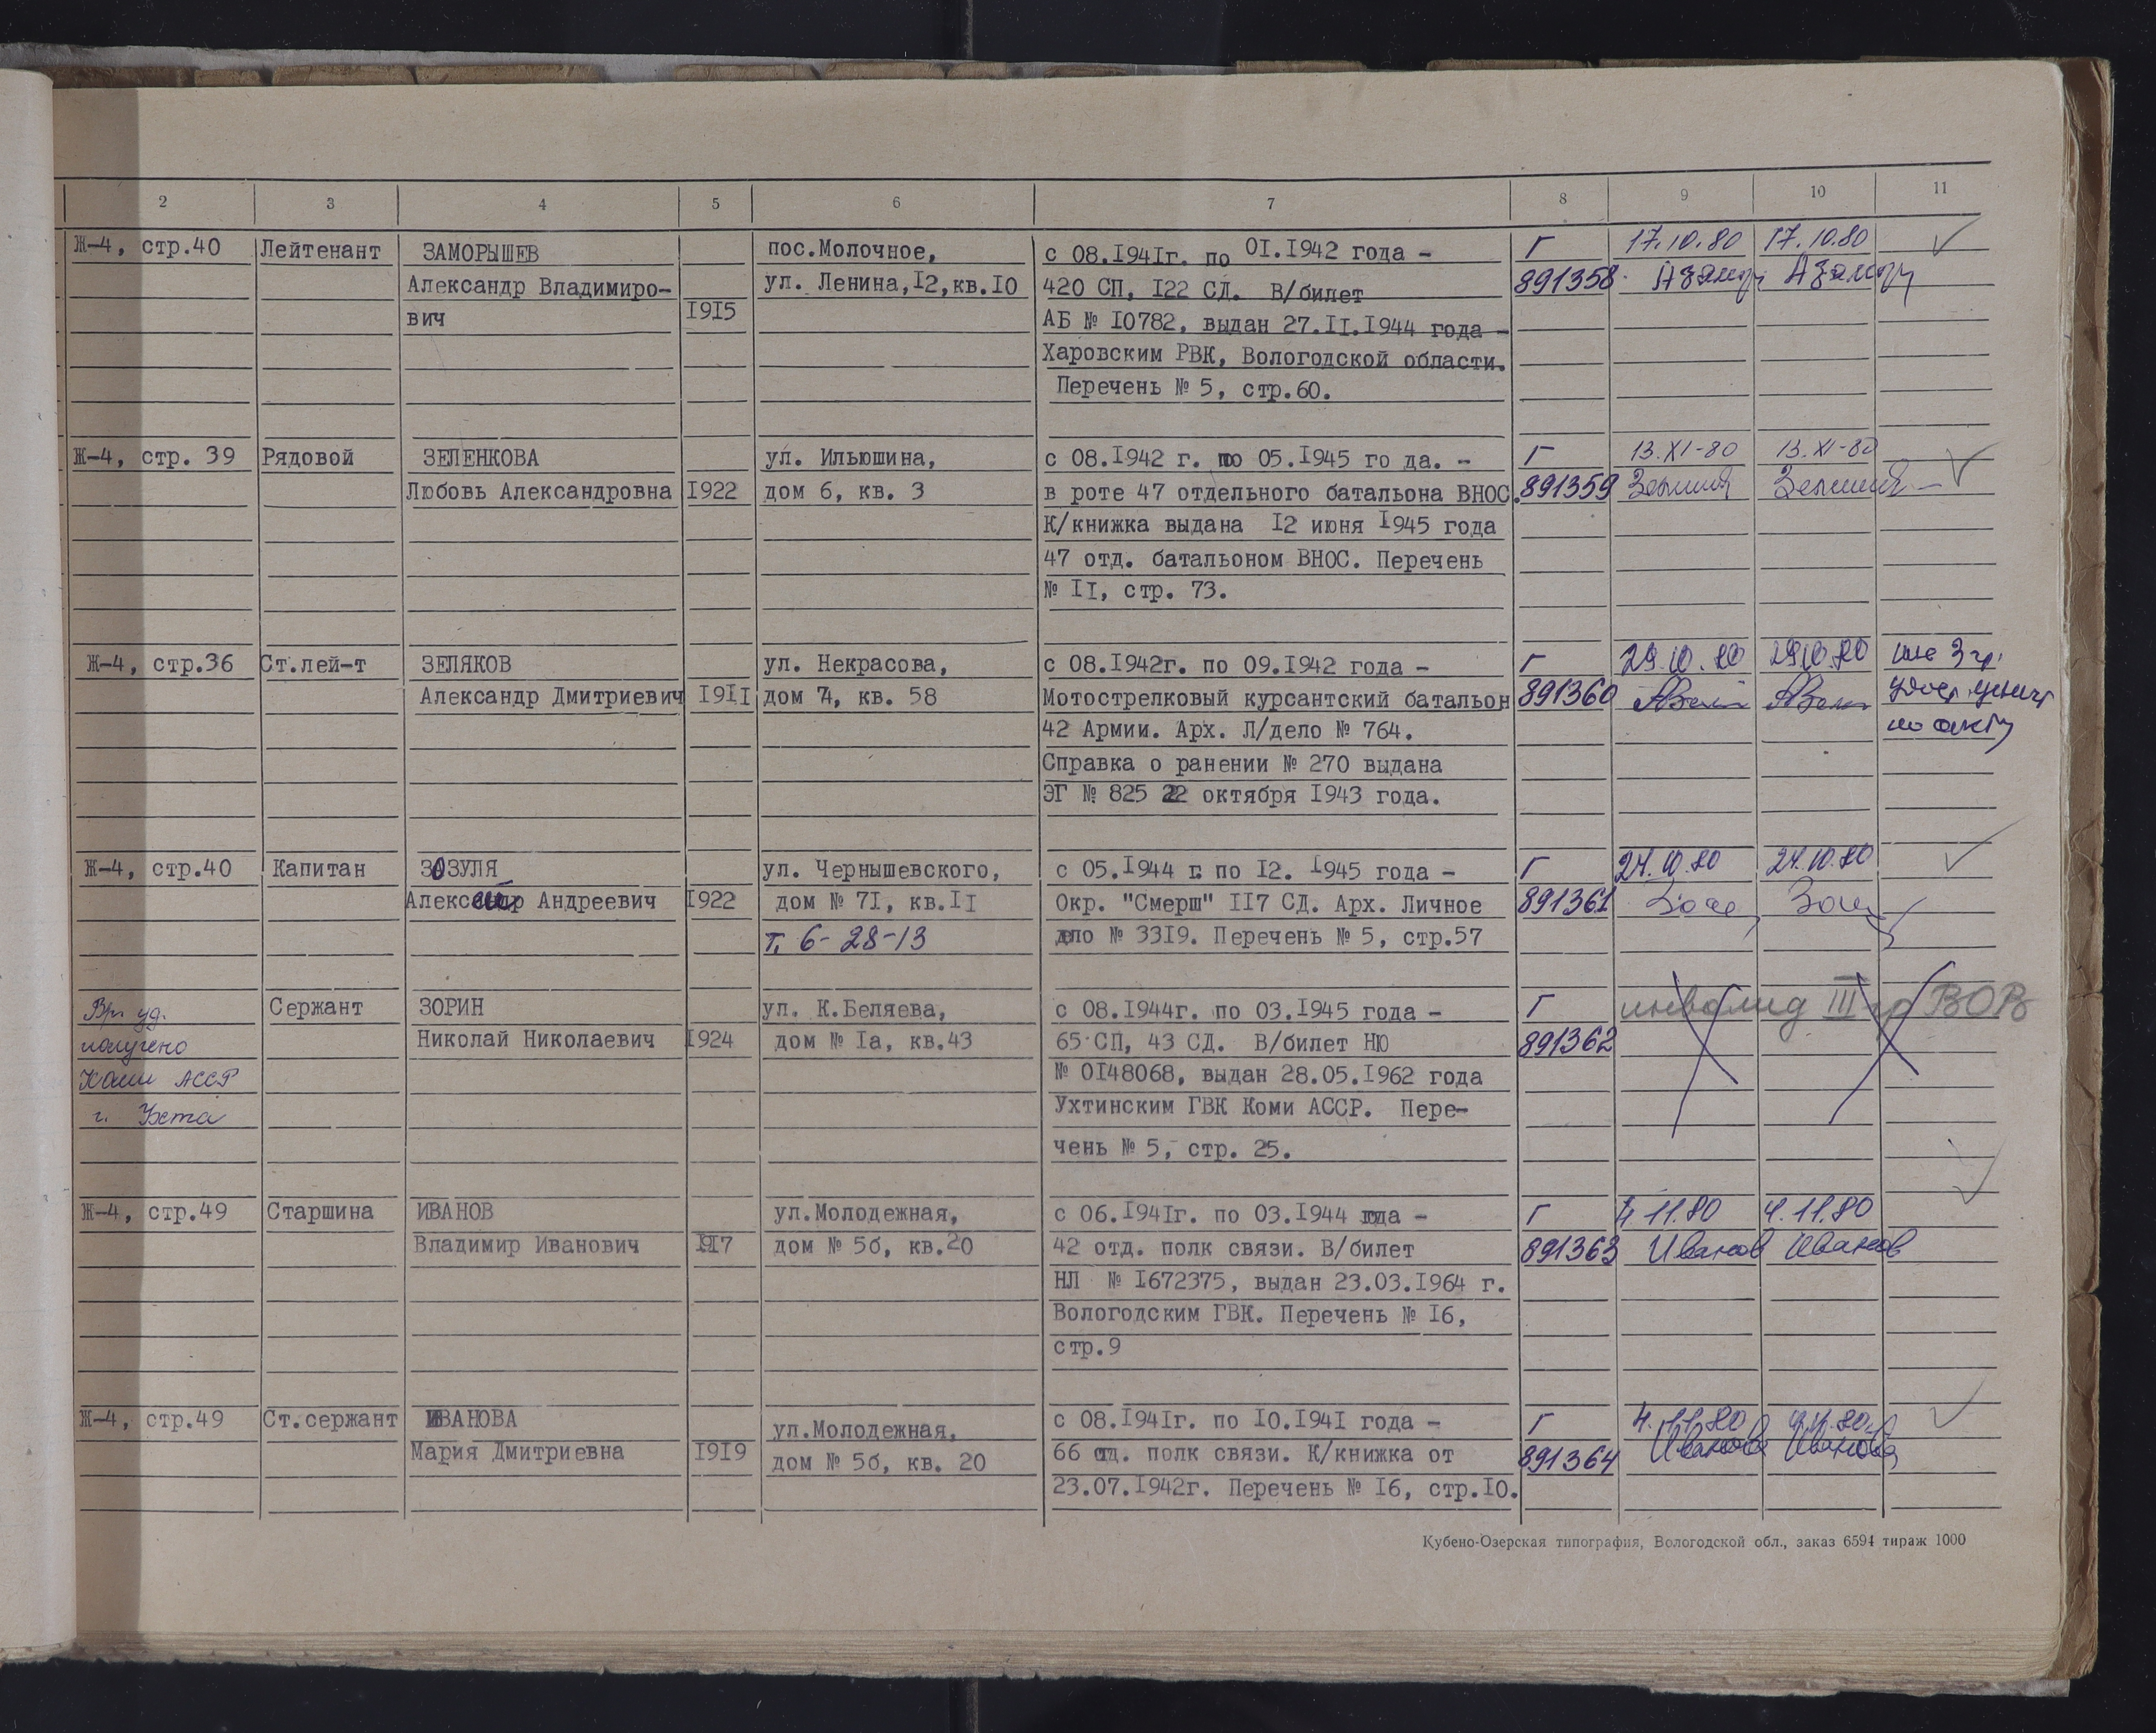 2 3 4 5 6 7 8 9 10 11
Ж-4, стр.40 Лейтенант ЗАМОРЫШЕВ пос.Молочное, с 08.1941г. по 01.1942 года - Г 17.10.80 17.10.80
Александр Владимиро- ул. Ленина,12,кв.10 420 СП, 122 СД. В/билет 891358
вич 1915 АБ № 10782, выдан 27.11.1944 года -
Харовским РВК, Вологодской области.
Перечень № 5, стр.60.
Ж-4, стр. 39 Рядовой ЗЕЛЕНКОВА ул. Ильюшина, с 08.1942 г. по 05.1945 го да. - Г 13.XI-80 13.XI-80
Любовь Александровна 1922 дом 6, кв. 3 в роте 47 отдельного батальона ВНОС. 891359
К/книжка выдана 12 июня 1945 года
47 отд. батальоном ВНОС. Перечень
№ 11, стр. 73.
Ж-4, стр.36 Ст.лей-т ЗЕЛЯКОВ ул. Некрасова, с 08.1942г. по 09.1942 года - Г 29.10.80 29.10.80 инв 3 гр.
Александр Дмитриевич 1911 дом 4, кв. 58 Мотострелковый курсантский батальон 891360
42 Армии. Арх. Л/дело № 764. по акту
Справка о ранении № 270 выдана
ЭГ № 825 22 октября 1943 года.
Ж-4, стр.40 Капитан ЗОЗУЛЯ ул. Чернышевского, с 05.1944 г. по 12. 1945 года - Г 24.10.80 24.10.80
Александр Андреевич 1922 дом № 71, кв.11 Окр. "Смерш" 117 СД. Арх. Личное 891361
т. 6-28-13 дело № 3319. Перечень № 5, стр.57
Вр. уд. Сержант ЗОРИН ул. К.Беляева, с 08.1944г. по 03.1945 года - Г инвалид III гр ВОВ
получено Николай Николаевич 1924 дом № 1а, кв.43 65 СП, 43 СД. В/билет НЮ 891362
Коми АССР № 0148068, выдан 28.05.1962 года
г. Ухта Ухтинским ГВК Коми АССР. Пере-
чень № 5, стр. 25.
Ж-4, стр.49 Старшина ИВАНОВ ул.Молодежная, с 06.1941г. по 03.1944 года - Г 4.11.80 4.11.80
Владимир Иванович 1917 дом № 5б, кв.20 42 отд. полк связи. В/билет 891363 Иванов Иванов
НЛ № 1672375, выдан 23.03.1964 г.
Вологодским ГВК. Перечень № 16,
стр.9
Ж-4, стр.49 Ст.сержант ИВАНОВА ул.Молодежная, с 08.1941г. по 10.1941 года - Г 4.11.80 4.11.80
Мария Дмитриевна 1919 дом № 5б, кв. 20 66 отд. полк связи. К/книжка от 891364 Иванова Иванова
23.07.1942г. Перечень № 16, стр.10.
Кубено-Озерская типография, Вологодской обл., заказ 6594 тираж 1000